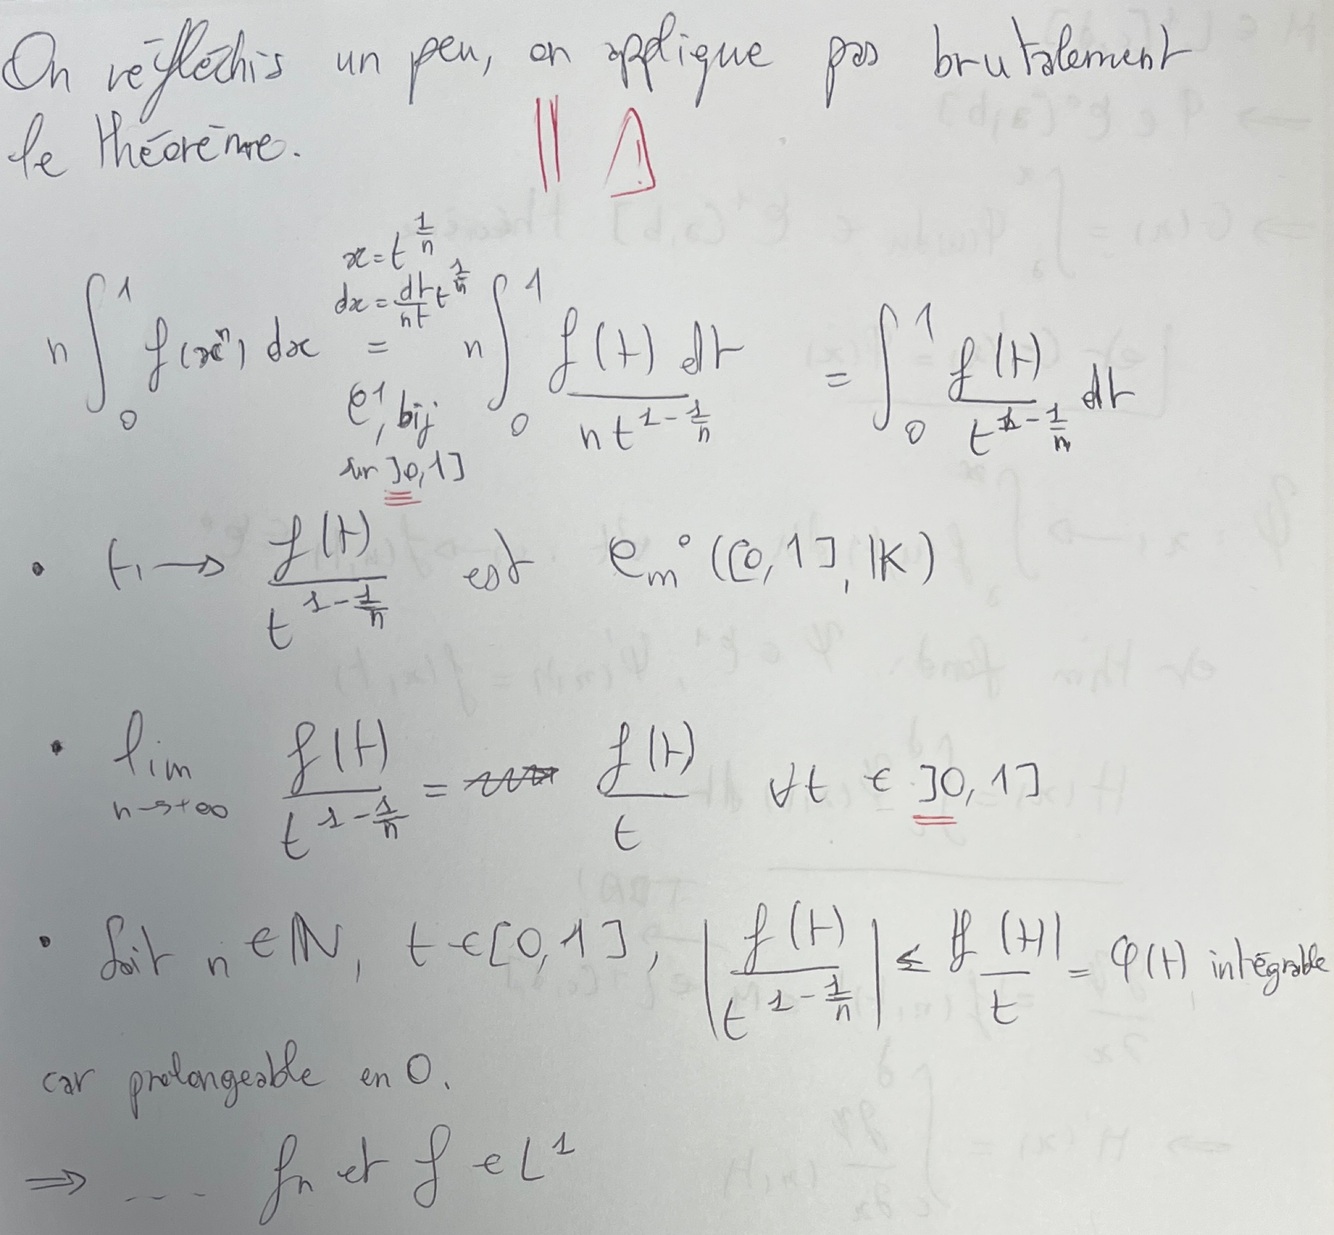 On réfléchis un peu, on applique pas brutalement
le théorème.
x = t^{1/n}
dx = dt/(nt) t^{1/n}
n ∫_0^1 f(x^n) dx = n ∫_0^1 f(t) dt / (n t^{1-1/n}) = ∫_0^1 f(t) / t^{1-1/n} dt
C^1, bij
sur ]0,1]
• t ↦ f(t) / t^{1-1/n} est C_m^0 ([0,1], K)
• lim_{n→+∞} f(t) / t^{1-1/n} = f(t) / t ∀t ∈ ]0,1]
• Soit n ∈ ℕ, t ∈ [0,1], |f(t) / t^{1-1/n}| ≤ |f(t)| / t = φ(t) intégrable
car prolongeable en 0.
⇒ .... f_n et f ∈ L^1